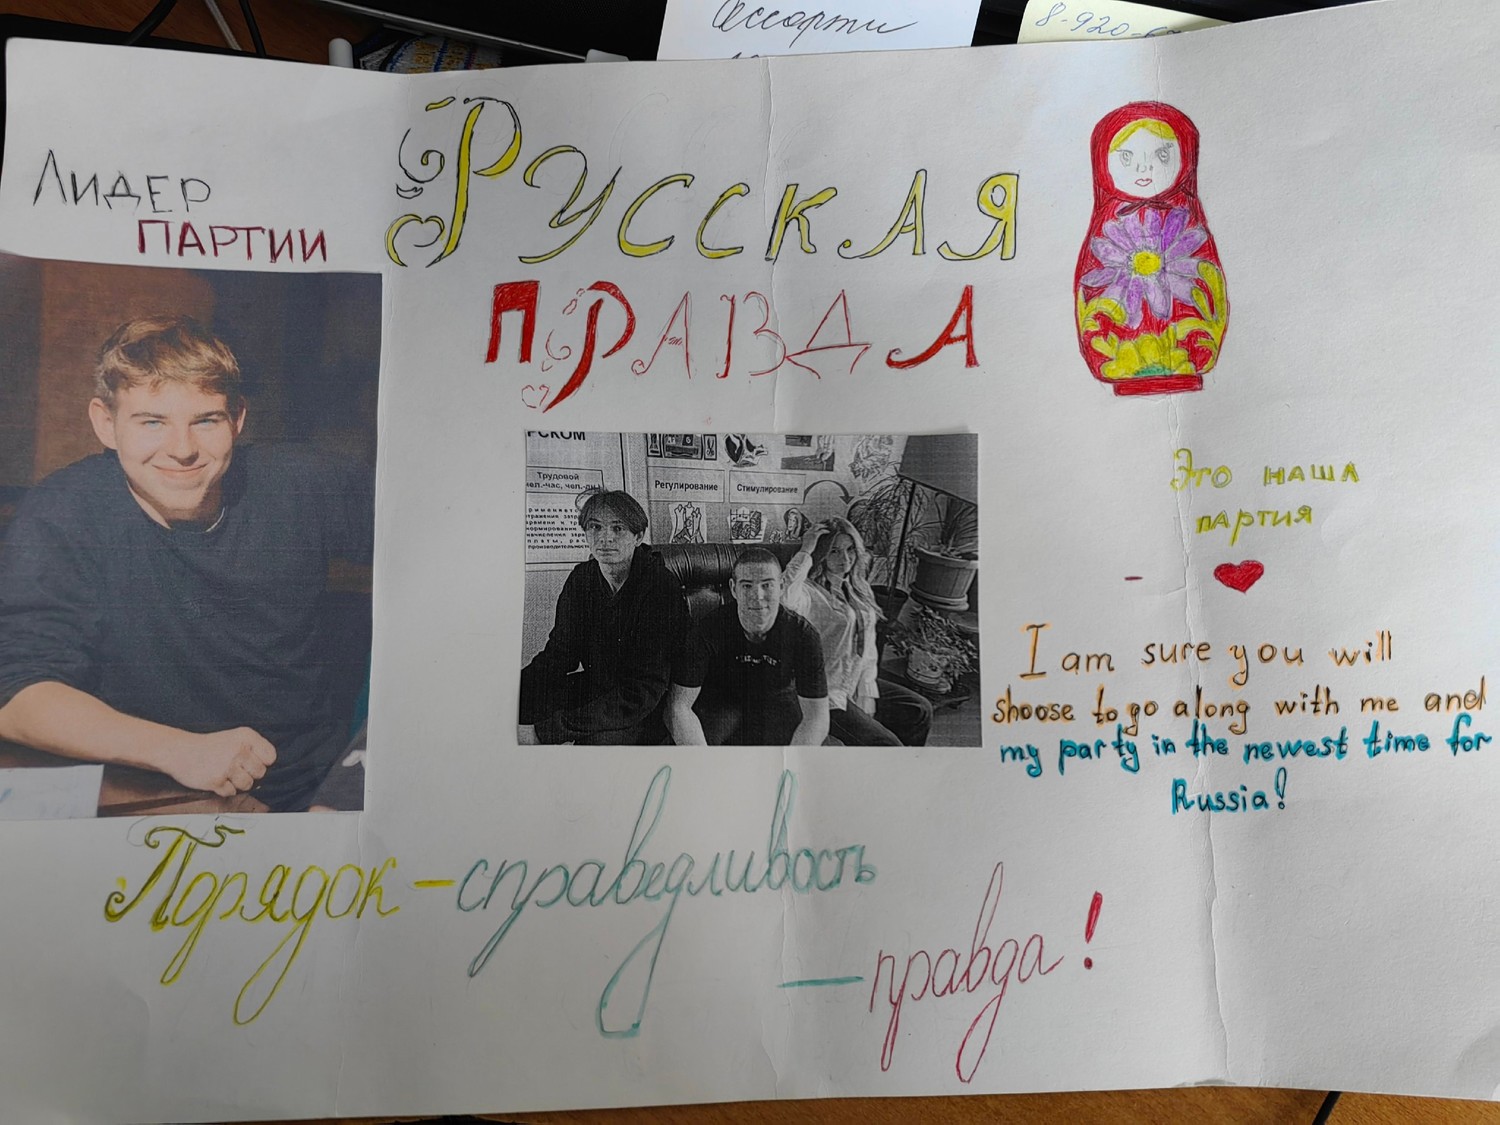 Ассорти
8-920-
Лидер
ПАРТИИ
РУССКАЯ
ПРАВДА
РСКОМ
Трудовой
чел.-час, чел.-дн
Регулирование
Стимулирование
Это наша
партия
- ❤
I am sure you will
shoose to go along with me and
my party in the newest time for
Russia!
Порядок - справедливость
- правда!